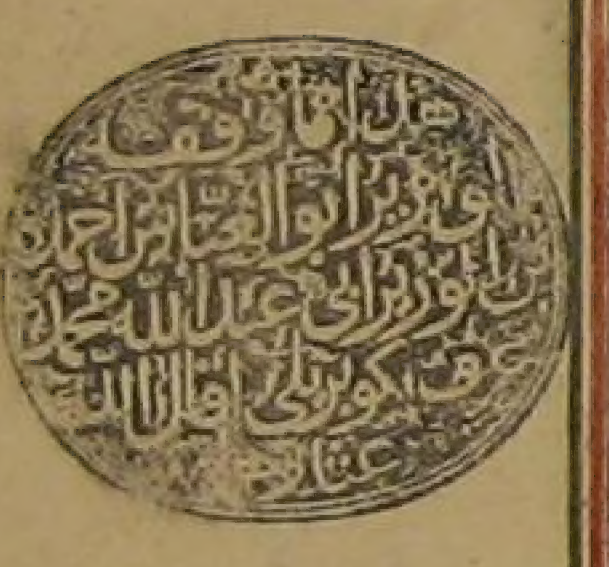 هذا ما وقفه
الوزير أبو العباس احمد
بن الوزير أبي عبد الله محمد
عرف بكوبريلي اقال الله
عثارهما